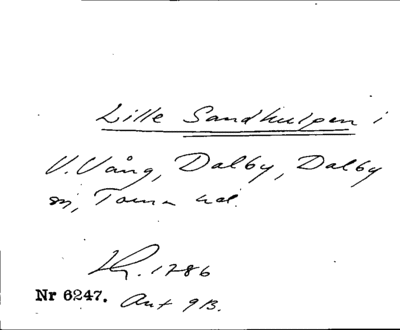 Lille Sandkulpen i
V. Vång, Dalby, Dalby
sn, Torna hd.
1786
Nr 6247. Akt 9B.